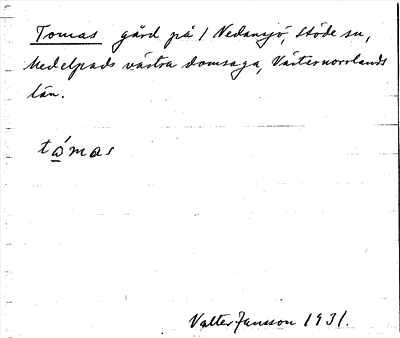 Tomas gård på 1 Nedansjö, Stöde sn,
Medelpads västra domsaga, Västernorrlands
län.
tómas
Valter Jansson 1931.